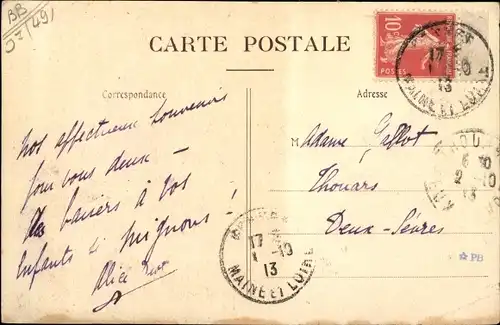 BB
CARTE POSTALE
10c
POSTES
17
13
MAINE ET LOIRE
Correspondance
Adresse
Nos affectueux souvenirs
pour vous deux —
des baisers à vos
enfants si mignons !
Alice
Madame
Thouars
Deux-Sèvres
THOUARS
2 -10
13
17
1 -10
13
MAINE ET LOIRE
PB